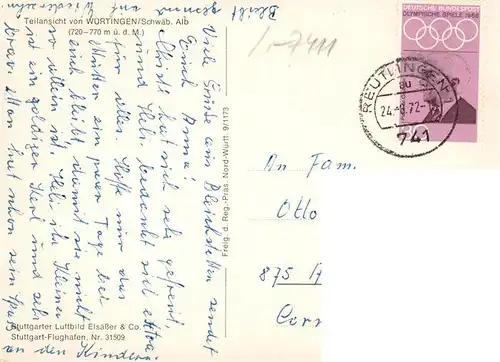 Teilansicht von WÜRTINGEN/Schwäb. Alb
(720–770 m ü. d. M.)
Viele Grüße aus Bleichstetten sendet
Euch Anna!
hat sich sehr gefreut,
und Heli bedankt sich extra
für alles. Hoffe nur das
Mutter ein paar Tage bei
euch bleibt, damit sie nicht
so allein ist. Heli ihr Kleiner
ist ein goldiger Kerl und sehr
brav. Man hat schon sein Spaß
an den Kindern.
Bleibt gesund
auf Wiedersehn
Freig. d. Reg.-Präs. Nord-Württ. 9/1173
Stuttgarter Luftbild Elsäßer & Co.
Stuttgart-Flughafen, Nr. 31509
DEUTSCHE BUNDESPOST
OLYMPISCHE SPIELE 1968
REUTLINGEN 1
au
24.-8.72-
741
7411
An Fam.
Otto
875